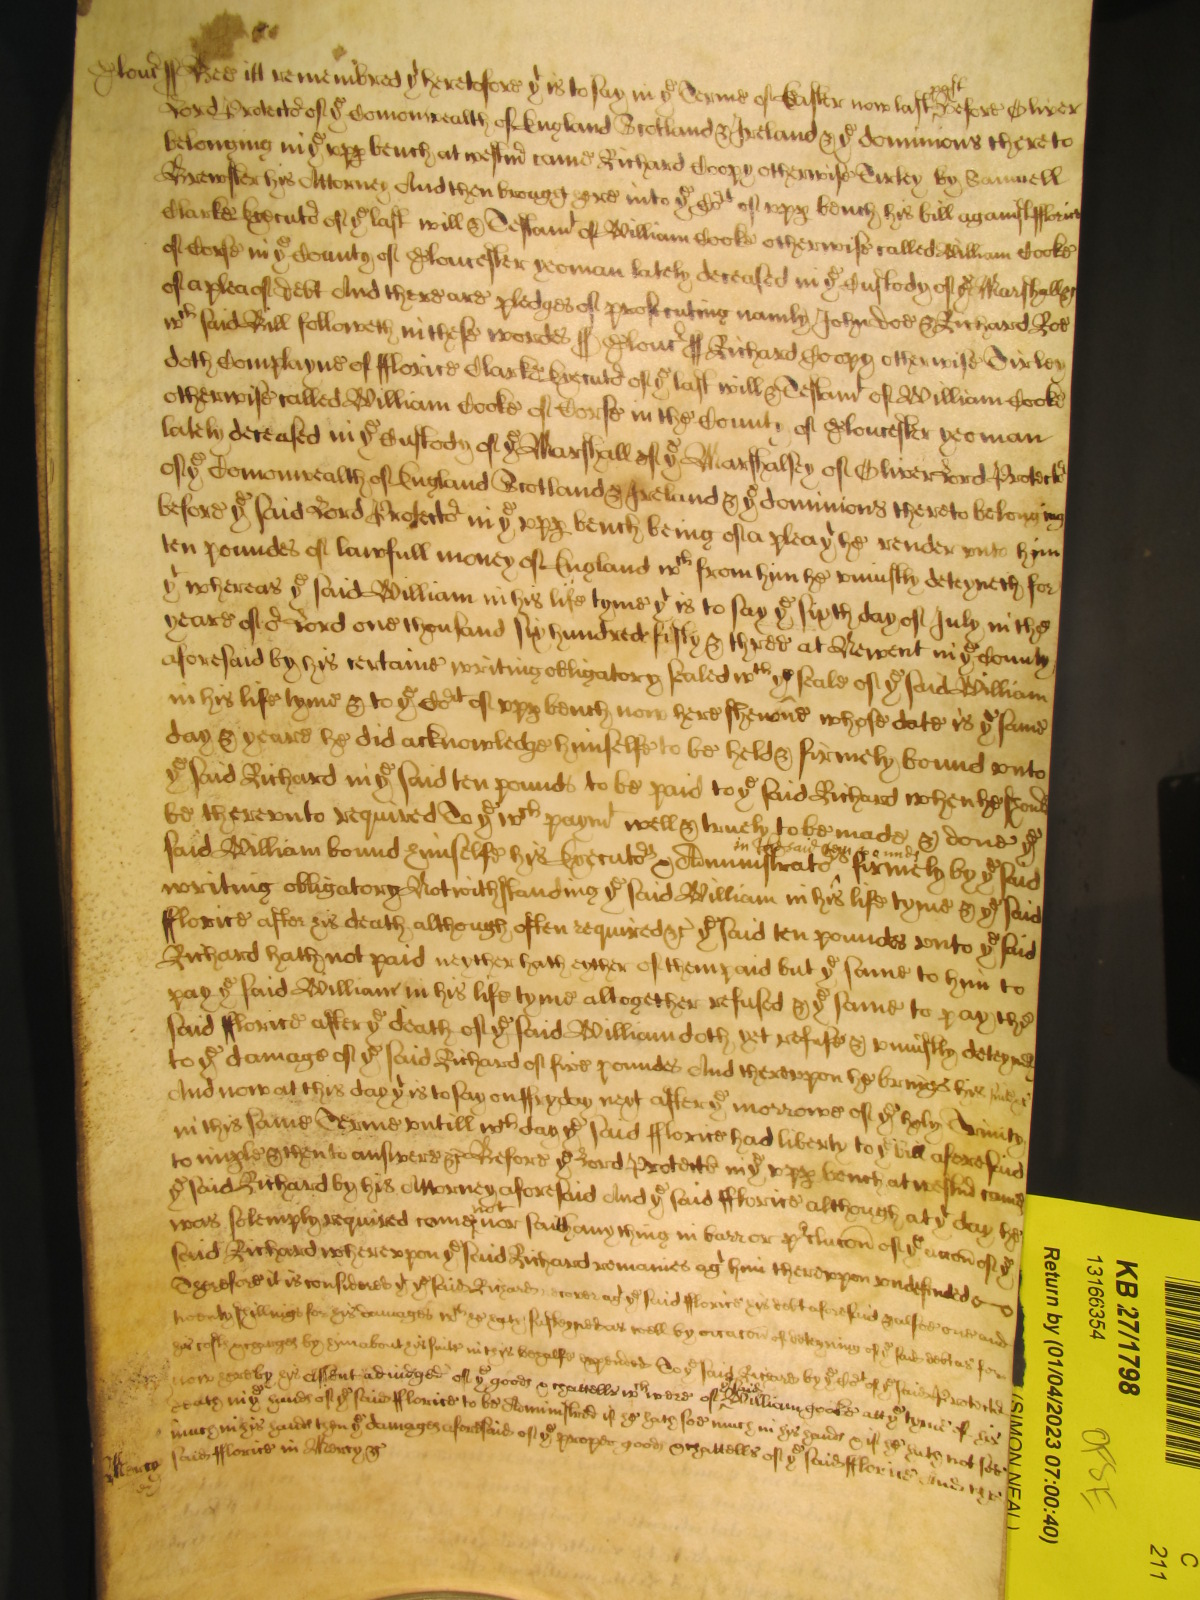 Glouc ss Bee itt remembred yt heretofore yt is to say in ye Terme of Easter now last past Before Oliver
Lord Protector of ye Comonwealth of England Scotland & Ireland & ye dominions thereto
belonging in ye upp bench at westm came Richard Coopy otherwise Tirley by Samuell
Brewster his Attorney And then brought here into ye Cort of upp bench his bill against fflorice
Clarke Executor of ye last will & Testamt of William Cooke otherwise called William Cooke
of Corse in ye County of Gloucester yeoman lately deceased in ye Custody of ye Marshall &c
of a plea of debt And there are pledges of prosecuting namely John Doe & Richard Roe
wch said Bill followeth in these wordes ss Glouc ss Richard Coopy otherwise Tirley
doth Complayne of fflorice Clarke Executor of ye last will & Testamt of William Cooke
otherwise called William Cooke of Corse in the County of Gloucester yeoman
lately deceased in ye Custody of ye Marshall of ye Marshalsey of Oliver Lord Protector
of ye Comonwealth of England Scotland & Ireland & ye dominions thereto belonging
before ye said Lord Protector in ye upp bench being of a plea yt he render unto him
ten poundes of lawfull money of England wch from him he uniustly deteyneth for
yt whereas ye said William in his life tyme yt is to say ye sixth day of July in the
yeare of or Lord one thousand six hundred fifty & three at Newent in ye County
aforesaid by his certaine writing obligatory sealed wth ye seale of ye said William
in his life tyme & to ye Cort of upp bench now here shewne whose date is ye same
day & yeare he did acknowledge himselfe to be held & firmely bound unto
ye said Richard in ye said ten pounds to be paid to ye said Richard when he should
be thereunto required To ye wch paymt well & truely to be made & done ye
said William bound himselfe his Executors & Administrators in the said ten pounds firmely by ye said
writing obligatory Notwithstanding ye said William in his life tyme & ye said
fflorice after his death although often required &c ye said ten poundes unto ye said
Richard hath not paid neyther hath eyther of them paid but ye same to him to
pay ye said William in his life tyme altogether refused & ye same to pay the
said fflorice after ye death of ye said William doth yet refuse & uniustly deteyne
to ye damage of ye said Richard of five poundes And thereuppon he brings his suite &c
And now at this day yt is to say on ffryday next after ye morrowe of ye holy Trinity
in this same Terme untill wch day ye said fflorice had liberty to ye bill aforesaid
to imple & then to answere &c Before ye Lord Protector in ye upp bench at westm came
ye said Richard by his Attorney aforesaid And ye said fflorice although at yt day he
was solemply required came not nor saith any thing in barr or pclucon of ye accon of ye
said Richard whereupon ye said Richard remaines agt him thereuppon undefended
Therefore it is considered yt ye said Richard recover agt ye said fflorice his debt aforesaid & alsoe one and
twenty shillings for his damages wch he hath susteyned as well by occacon of deteyning of ye said debt as for
his costs & charges by him about his suite in this behalfe expended To ye said Richard by ye Cort of ye said Lord Protector
now here by his assent adiudged of ye goods & chattells wch were of ye said William Cooke att ye tyme of his
death in ye hands of ye said fflorice to be Administred if he hath soe much in his hands & if he hath not soe
much in his hands then ye damages aforesaid of ye proper goods & chattells of ye said fflorice And the
said fflorice in Mercy &c
Mercy
KB 27/1798
13166354
Return by (01/04/2023 07:00:40)
(SIMON NEAL)
C
211